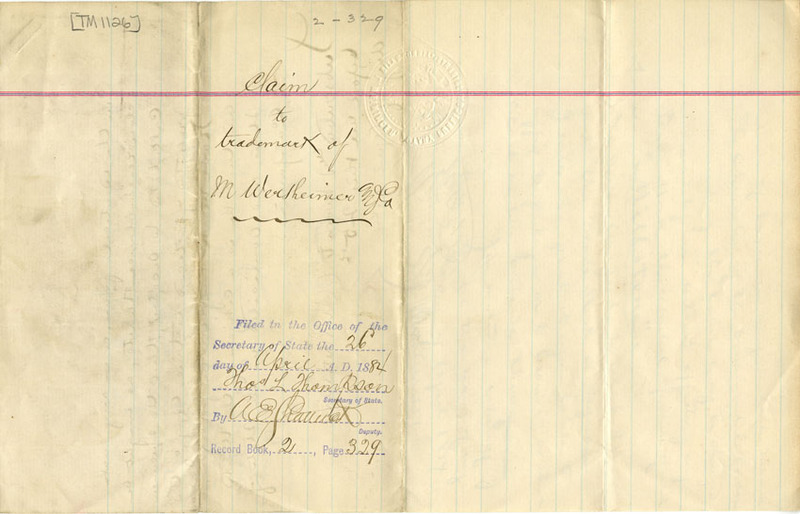 [TM1126]
2-329
Claim
to
trademark of
M Wertheimer & Co
Filed in the Office of the
Secretary of State the 26
day of April A. D. 1884
Thos L Thompson
Secretary of State.
By A E
Deputy.
Record Book, 2, Page 329